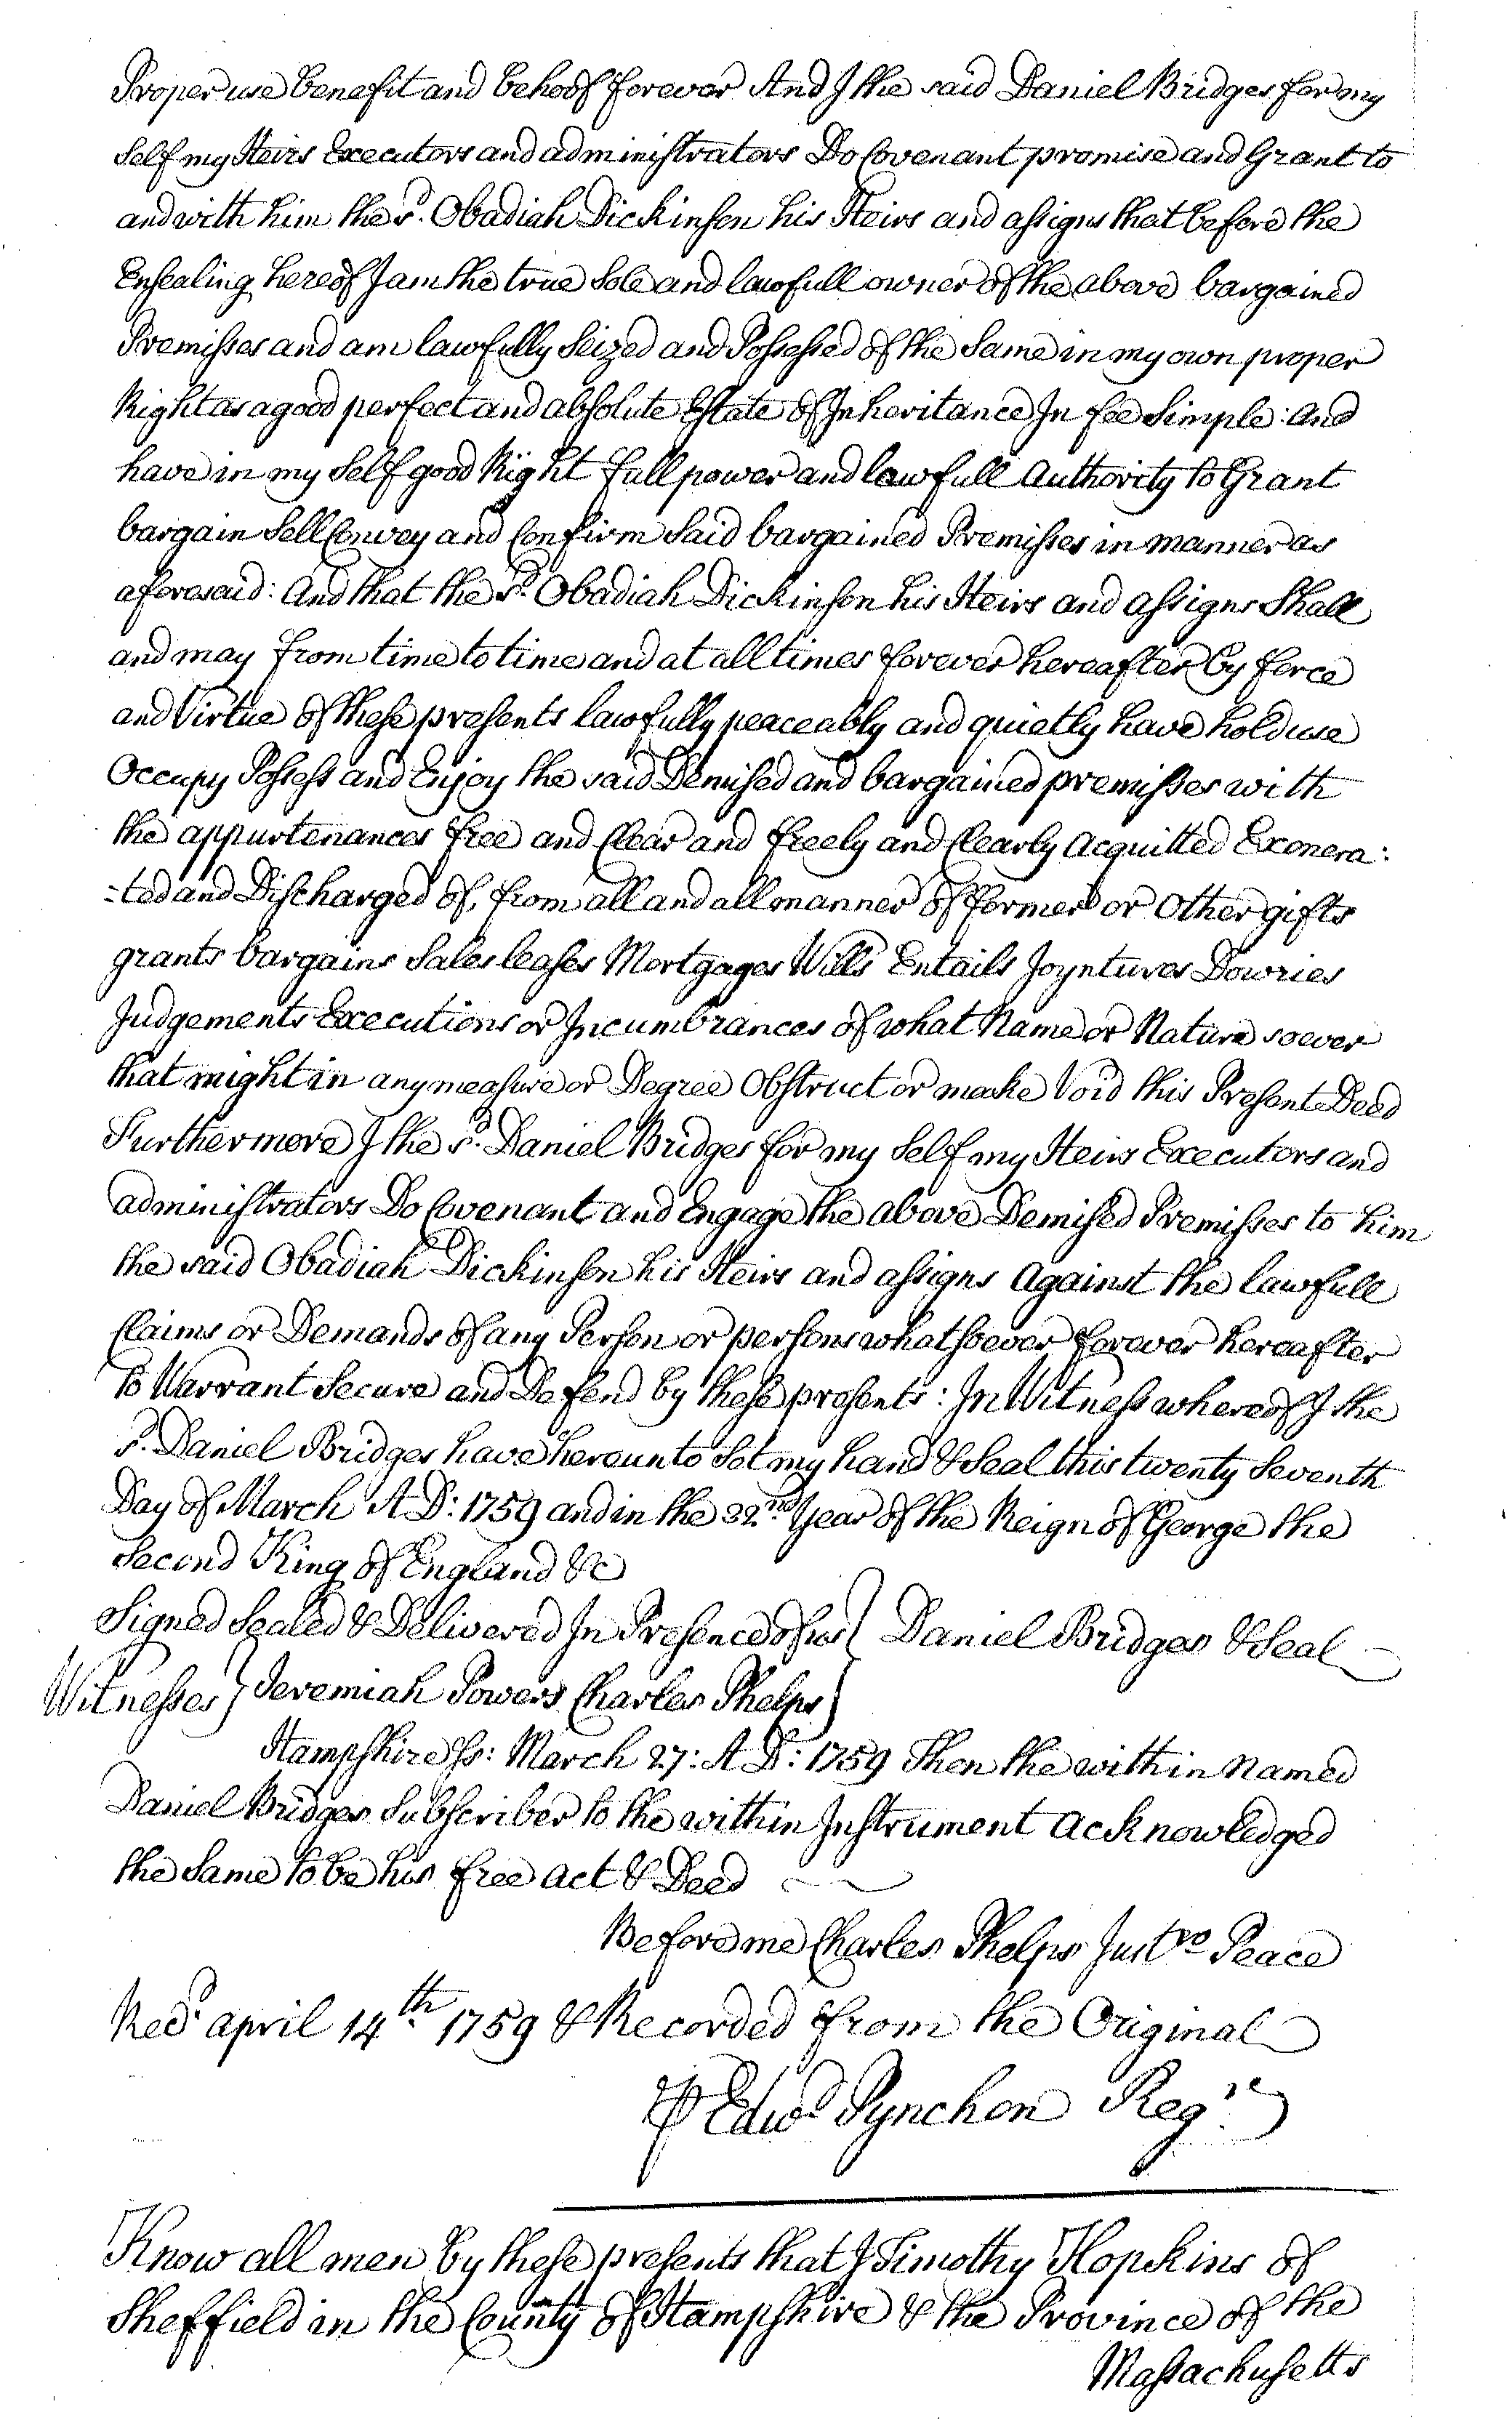 Proper use benefit and behoof forever And I the said Daniel Bridges for my
self my Heirs Executors and administrators Do Covenant promise and Grant to
and with him the sd. Obadiah Dickinson his Heirs and assigns that before the
Ensealing hereof I am the true Sole and lawfull owner of the above bargained
Premisses and am lawfully Seized and Possessed of the Same in my own proper
Right as a good perfect and absolute Estate of Inheritance In fee Simple: And
have in my Self good Right full power and lawfull Authority to Grant
bargain Sell Convey and Confirm Said bargained Premisses in manner as
aforesaid: And that the sd. Obadiah Dickinson his Heirs and assigns Shall
and may from time to time and at all times forever hereafter by force
and Virtue of these presents lawfully peaceably and quietly have hold use
Occupy Possess and Enjoy the said Demised and bargained premisses with
the appurtenances free and Clear and freely and Clearly Acquitted Exonera:
-ted and Discharged of, from all and all manner of former or Other gifts
grants bargains Sales leases Mortgages Wills Entails Joyntures Dowries
Judgements Executions or Incumbrances of what Name or Nature soever
that might in any measure or Degree Obstruct or make Void this Present Deed
Furthermore I the sd. Daniel Bridges for my Self my Heirs Executors and
administrators Do Covenant and Engage the above Demised Premisses to him
the said Obadiah Dickinson his Heirs and assigns Against the lawfull
Claims or Demands of any Person or persons whatsoever forever hereafter
to Warrant Secure and Defend by these presents: In Witness whereof I the
sd. Daniel Bridges have hereunto Set my hand & Seal this twenty Seventh
Day of March A D: 1759 and in the 32nd. Year of the Reign of George the
Second King of England &c
Signed Sealed & Delivered In Presence of us } Daniel Bridges & Seal
Witnesses } Jeremiah Powers Charles Phelps }
Hampshire Ss: March 27: A D: 1759 Then the within Named
Daniel Bridges Subscriber to the within Instrument Acknowledged
the Same to be his free Act & Deed
Before me Charles Phelps Justce Peace
Recd. april 14th. 1759 & Recorded from the Original
⅌ Edwd Pynchon Regr.
Know all men by these presents that I Timothy Hopkins of
Sheffield in the County of Hampshire & the Province of the
Massachusetts